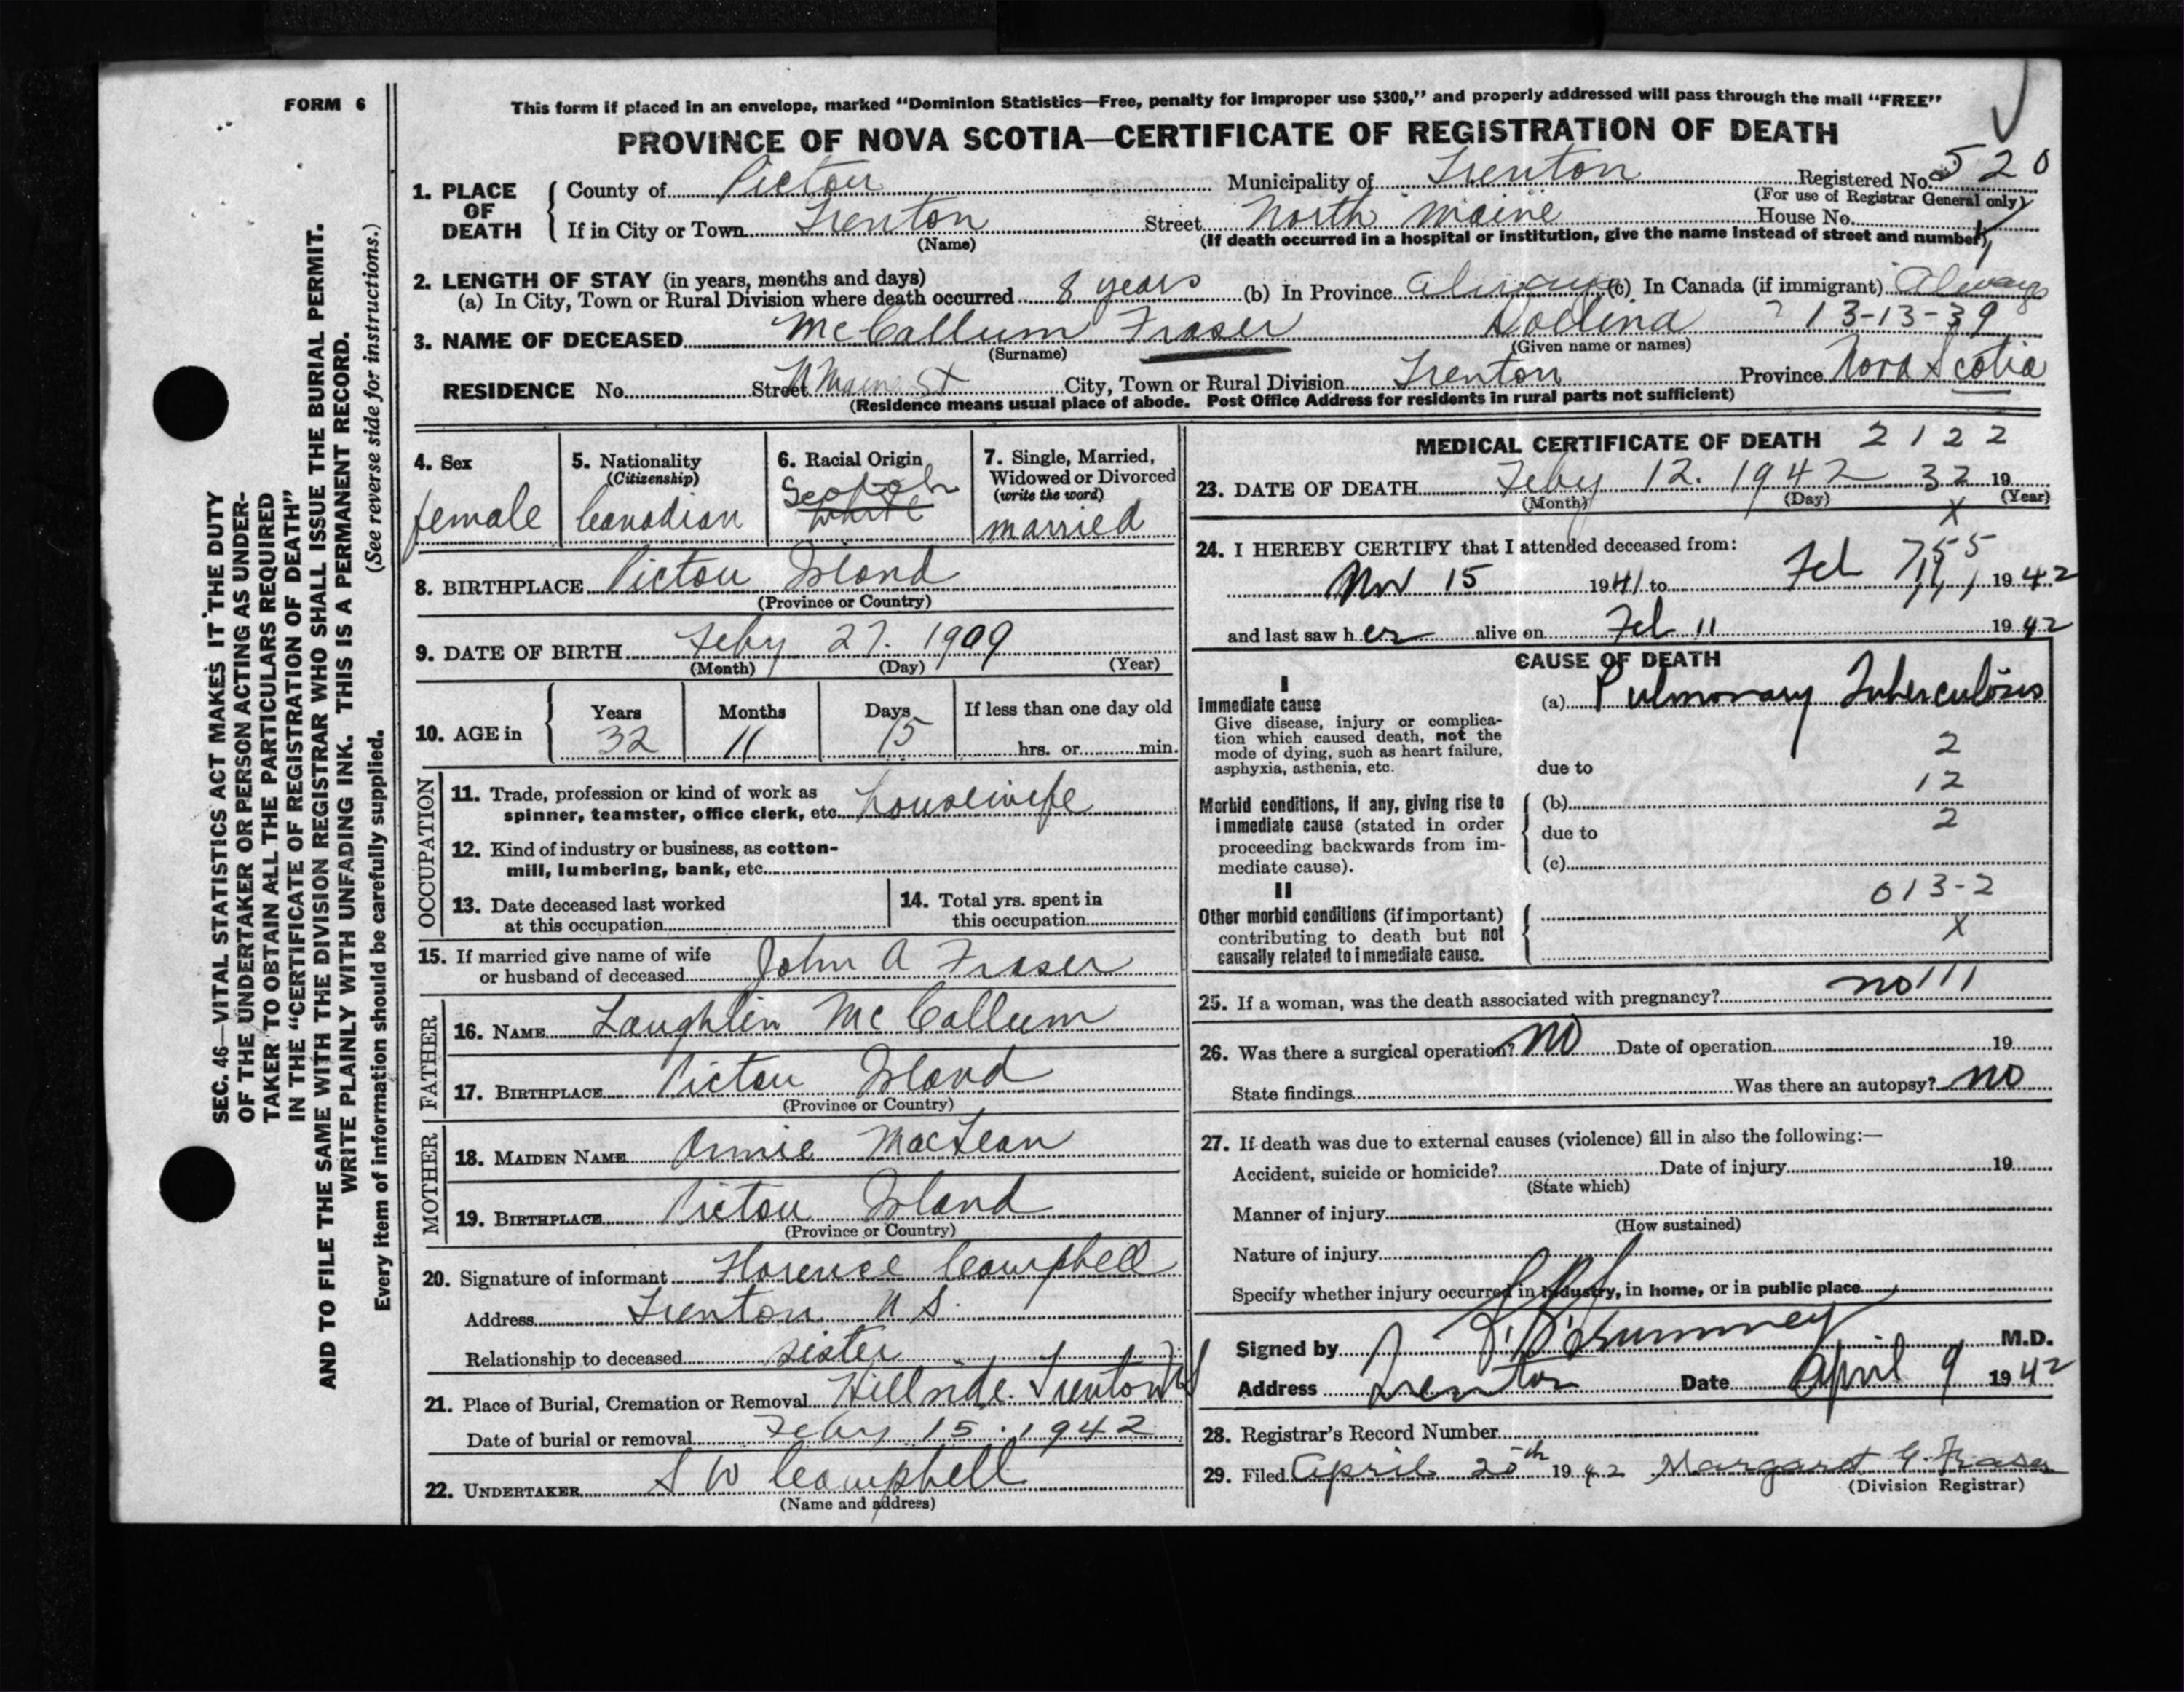 FORM 6
This form if placed in an envelope, marked “Dominion Statistics—Free, penalty for improper use $300,” and properly addressed will pass through the mail “FREE”
PROVINCE OF NOVA SCOTIA—CERTIFICATE OF REGISTRATION OF DEATH
SEC. 46—VITAL STATISTICS ACT MAKES IT THE DUTY
OF THE UNDERTAKER OR PERSON ACTING AS UNDER-
TAKER TO OBTAIN ALL THE PARTICULARS REQUIRED
IN THE “CERTIFICATE OF REGISTRATION OF DEATH”
AND TO FILE THE SAME WITH THE DIVISION REGISTRAR WHO SHALL ISSUE THE BURIAL PERMIT.
WRITE PLAINLY WITH UNFADING INK. THIS IS A PERMANENT RECORD.
Every item of information should be carefully supplied. (See reverse side for instructions.)
1. PLACE OF DEATH
County of Pictou Municipality of Trenton Registered No. 520
(For use of Registrar General only)
If in City or Town Trenton Street North Maine House No.
(Name) (If death occurred in a hospital or institution, give the name instead of street and number)
2. LENGTH OF STAY (in years, months and days)
(a) In City, Town or Rural Division where death occurred 8 years (b) In Province always (c) In Canada (if immigrant) Always
3. NAME OF DECEASED McCallum Fraser Dollena 13-13-39
(Surname) (Given name or names)
RESIDENCE No. Street N Maine St City, Town or Rural Division Trenton Province Nova Scotia
(Residence means usual place of abode. Post Office Address for residents in rural parts not sufficient)
4. Sex
female
5. Nationality
(Citizenship)
Canadian
6. Racial Origin
Scotch
White
7. Single, Married,
Widowed or Divorced
(write the word)
married
8. BIRTHPLACE Pictou Island
(Province or Country)
9. DATE OF BIRTH Feby 27. 1909
(Month) (Day) (Year)
10. AGE in
Years Months Days If less than one day old
32 11 15 hrs. or min.
OCCUPATION
11. Trade, profession or kind of work as
spinner, teamster, office clerk, etc. housewife
12. Kind of industry or business, as cotton-
mill, lumbering, bank, etc.
13. Date deceased last worked
at this occupation
14. Total yrs. spent in
this occupation
15. If married give name of wife
or husband of deceased John A Fraser
FATHER
16. NAME Laughlin McCallum
17. BIRTHPLACE Pictou Island
(Province or Country)
MOTHER
18. MAIDEN NAME Annie MacLean
19. BIRTHPLACE Pictou Island
(Province or Country)
20. Signature of informant Florence Campbell
Address Trenton N.S.
Relationship to deceased sister
21. Place of Burial, Cremation or Removal Hillside. Trenton NS
Date of burial or removal Feby 15. 1942
22. UNDERTAKER S W Campbell
(Name and address)
MEDICAL CERTIFICATE OF DEATH 2122
23. DATE OF DEATH Feby 12. 1942 32 19
(Month) (Day) (Year)
X
24. I HEREBY CERTIFY that I attended deceased from:
Nov 15 1941 to Feb 1942
and last saw her alive on Feb 11 1942
CAUSE OF DEATH
I
Immediate cause
Give disease, injury or complica-
tion which caused death, not the
mode of dying, such as heart failure,
asphyxia, asthenia, etc.
(a) Pulmonary Tuberculosis
2
due to
12
Morbid conditions, if any, giving rise to
immediate cause (stated in order
proceeding backwards from im-
mediate cause).
(b)
2
due to
(c)
II
013-2
Other morbid conditions (if important)
contributing to death but not
causally related to immediate cause.
X
25. If a woman, was the death associated with pregnancy? no 111
26. Was there a surgical operation? NO Date of operation 19
State findings Was there an autopsy? NO
27. If death was due to external causes (violence) fill in also the following:—
Accident, suicide or homicide? Date of injury 19
(State which)
Manner of injury
(How sustained)
Nature of injury
Specify whether injury occurred in industry, in home, or in public place
Signed by M.D.
Address Trenton Date April 9 1942
28. Registrar's Record Number
29. Filed April 20th 1942 Margaret G. Fraser
(Division Registrar)